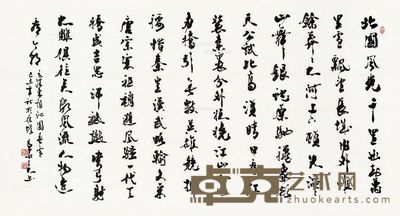 北國風光千里冰封萬
里雪飄望長城内外惟
餘莽莽大河上下頓失滔
山舞銀蛇原馳蠟象欲
天公試比高須晴日看紅
裝素裹分外妖嬈江山
多嬌引無數英雄競折
腰惜秦皇漢武略輸文采
唐宗宋祖稍遜風騷一代天
驕成吉思汗祇識彎弓射
大雕俱往矣數風流人物還
看今朝
沁園春雪